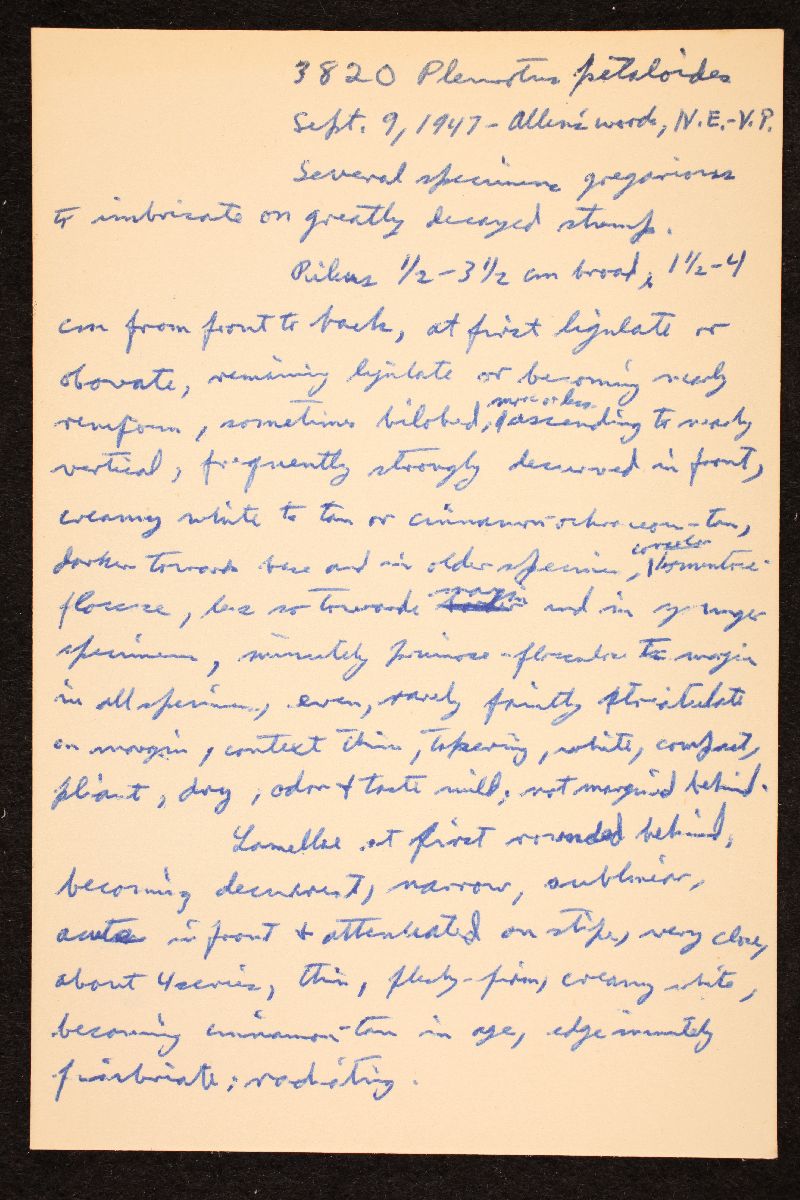 3820 Pleurotus petaloides
Sept. 9, 1947 - Allen's woods, N.E.-V.P.
Several specimens gregarious
to imbricate on greatly decayed stump.
Pileus 1/2-3 1/2 cm broad, 1 1/2-4
cm from front to back, at first ligulate or
obovate, remaining ligulate or becoming nearly
reniform, sometimes bilobed, more or less ascending to nearly
vertical, frequently strongly decurved in front,
creamy white to tan or cinnamon-ochraceous-tan,
darker towards base and in older specimens, tomentose-
floccose, less so towards margin and in younger
specimens, minutely pruinose-flocculose to margin
in all specimens, even, rarely faintly striatulate
on margin, context thin, tapering, white, compact,
pliant, dry, odor & taste mild; not margined behind.
Lamellae at first rounded behind,
becoming decurrent, narrow, sublinear,
acute in front & attenuated on stipe, very close,
about 4 series, thin, fleshy-firm, creamy white,
becoming cinnamon-tan in age, edge minutely
fimbriate; radiating.